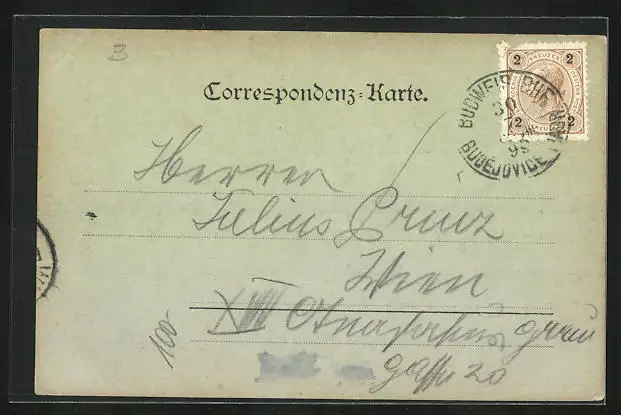 3
2 KREUZER 2
2 2
Correspondenz-Karte.
BUDWEIS BHF
30
99
BUDĚJOVICE
Herrn
Julius Prinz
Wien
XVIII
gasse 20
100